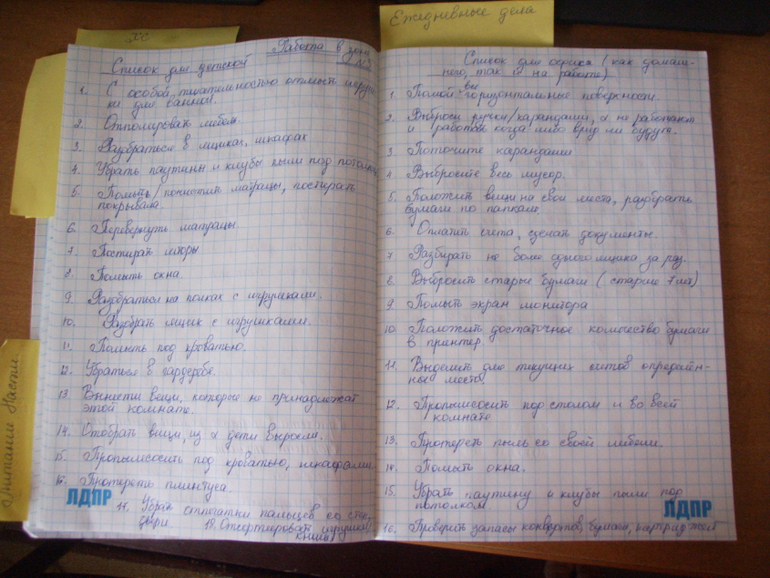 ХС
Ежедневные дела
Работа в зоне
Список для детской
1. С особой тщательностью отмыть игруш-
ки для ванной.
2. Отполировать мебель.
3. Разобраться в ящиках, шкафах
4. Убрать паутины и клубы пыли под потолком
5. Помыть/почистить матрацы, постирать
покрывала.
6. Перевернуть матрацы
7. Постирать шторы
8. Помыть окна.
9. Разобраться на полках с игрушками.
10. Разобрать ящик с игрушками.
11. Помыть под кроватью.
12. Убраться в гардеробе.
13. Вынести вещи, которые не принадлежат
этой комнате.
14. Отобрать вещи, из к дети выросли.
15. Пропылесосить под кроватью, шкафами
16. Протереть плинтуса.
17. Убрать отпечатки пальцев со стен,
двери.
18. Отсортировать игрушки,
книги
ЛДПР
Насти
Список для офиса (как домаш-
него, так и на работе)
1. Помой все горизонтальные поверхности.
2. Выброси ручки/карандаши, к не работают
и работать когда либо вряд ли будут.
3 Поточите карандаши
4. Выбросите весь мусор.
5. Положить вещи на свои места, разобрать
бумаги по папкам
6. Оплатить счета, сделать документы.
7 Разбирать не более одного ящика за раз.
8 Выбросить старые бумаги (старше 7 лет)
9 Помыть экран монитора
10 Положить достаточное количество бумаги
в принтер.
11. Выделить для текущих счетов определён-
ное место.
12. Пропылесосить под столом и во всей
комнате
13. Протереть пыль со своей мебели.
14. Помыть окна.
15 Убрать паутину и клубы пыли под
потолком
ЛДПР
16. Проверить запасы конвертов, бумаги, картриджей